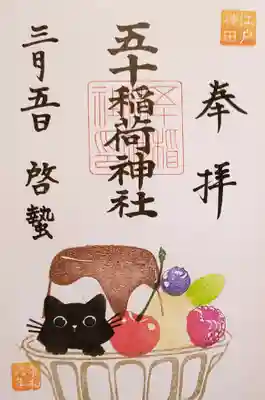 江戸
神田
奉拝
五十稲荷神社
三月五日 啓蟄